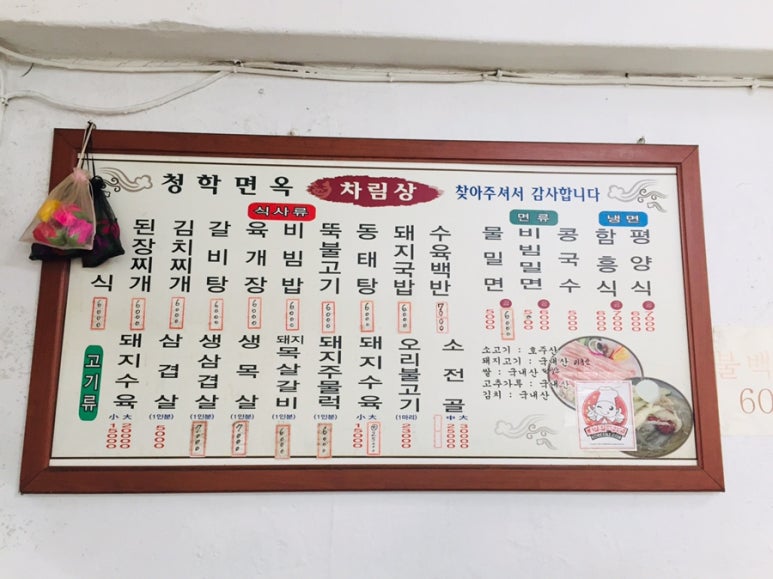 청학면옥 차림상 찾아주셔서 감사합니다
식사류
식 6000
된장찌개 6000
김치찌개 6000
갈비탕 6000
육개장 6000
비빔밥 6000
뚝불고기 6000
동태탕 6000
돼지국밥 6000
수육백반 7500
면류
물밀면 소 5000 대 6000
비빔밀면 5000 6000
콩국수 5000
냉면
함흥식 6000 7000
평양식 6000 7000
고기류
돼지수육 小 15000 大 20000
삼겹살 (1인분) 5000
생삼겹살 (1인분) 7000
생목살 (1인분) 7000
돼지목살갈비 (1인분) 6000
돼지주물럭 (1인분) 6000
돼지수육 小 大
오리불고기 (1마리) 23000
소전골 中 25000 大 30000
소고기 : 호주산
돼지고기 : 국내산
쌀 : 국내산
고추가루 : 국내산
김치 : 국내산
불백
60